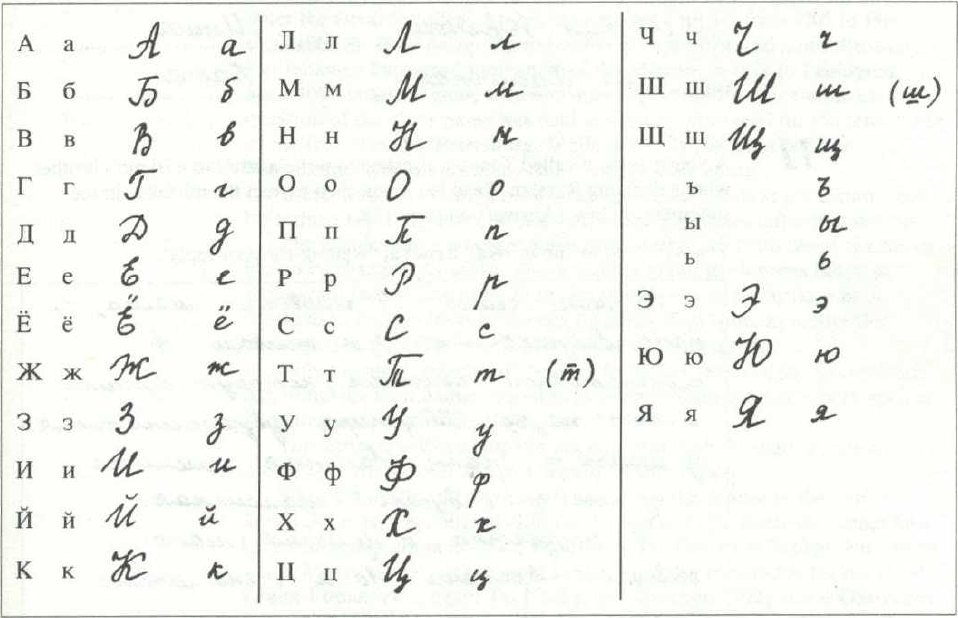 А а А а
Б б Б б
В в В в
Г г Г г
Д д Д д
Е е Е е
Ё ё Ё ё
Ж ж Ж ж
З з З з
И и И и
Й й Й й
К к К к
Л л Л л
М м М м
Н н Н н
О о О о
П п П п
Р р Р р
С с С с
Т т Т т (т̅)
У у У у
Ф ф Ф ф
Х х Х х
Ц ц Ц ц
Ч ч Ч ч
Ш ш Ш ш (ш̲)
Щ щ Щ щ
ъ ъ
ы ы
ь ь
Э э Э э
Ю ю Ю ю
Я я Я я